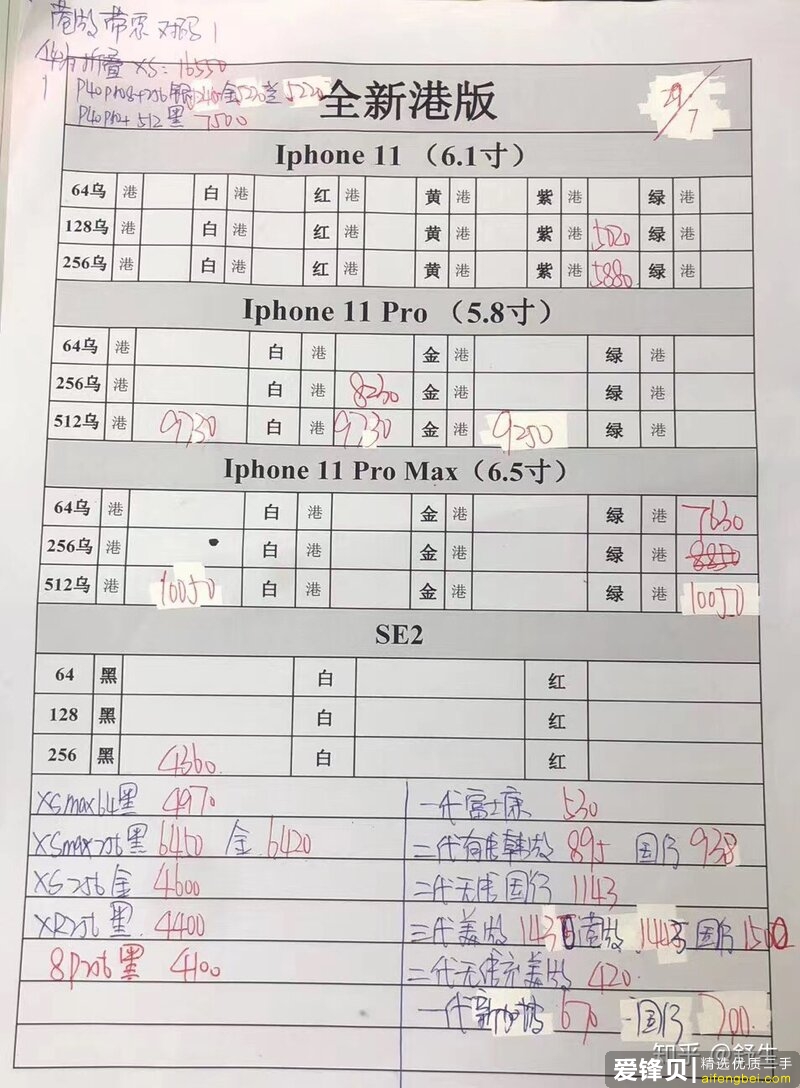 港版 带票 对码 1
折叠 XS: 16550
P40pro 8+256 银 金 5220 兰 5220
P40pro+ 512 黑 7500
全新港版
29/7
Iphone 11 （6.1寸）
64乌 港 白 港 红 港 黄 港 紫 港 绿 港
128乌 港 白 港 红 港 黄 港 紫 港 5020 绿 港
256乌 港 白 港 红 港 黄 港 紫 港 5880 绿 港
Iphone 11 Pro （5.8寸）
64乌 港 白 港 金 港 绿 港
256乌 港 白 港 8230 金 港 绿 港
512乌 港 9730 白 港 9730 金 港 9250 绿 港
Iphone 11 Pro Max（6.5寸）
64乌 港 白 港 金 港 绿 港 7630
256乌 港 白 港 金 港 绿 港 8850
512乌 港 10050 白 港 金 港 绿 港 10050
SE2
64 黑 白 红
128 黑 白 红
256 黑 4360 白 红
XSmax64黑 4970
XSmax256黑 6450 金 6420
XS256金 4600
XR256黑 4400
8P256黑 4100
一代富士康 530
二代有线韩版 895 国行 938
二代无线国行 1143
三代美版 143 港版 144 国行 1500
二代无线充美版 420
一代新加坡 670 一国行 700
知乎 @舒生
爱锋贝 精选优质二手
aifengbei.com